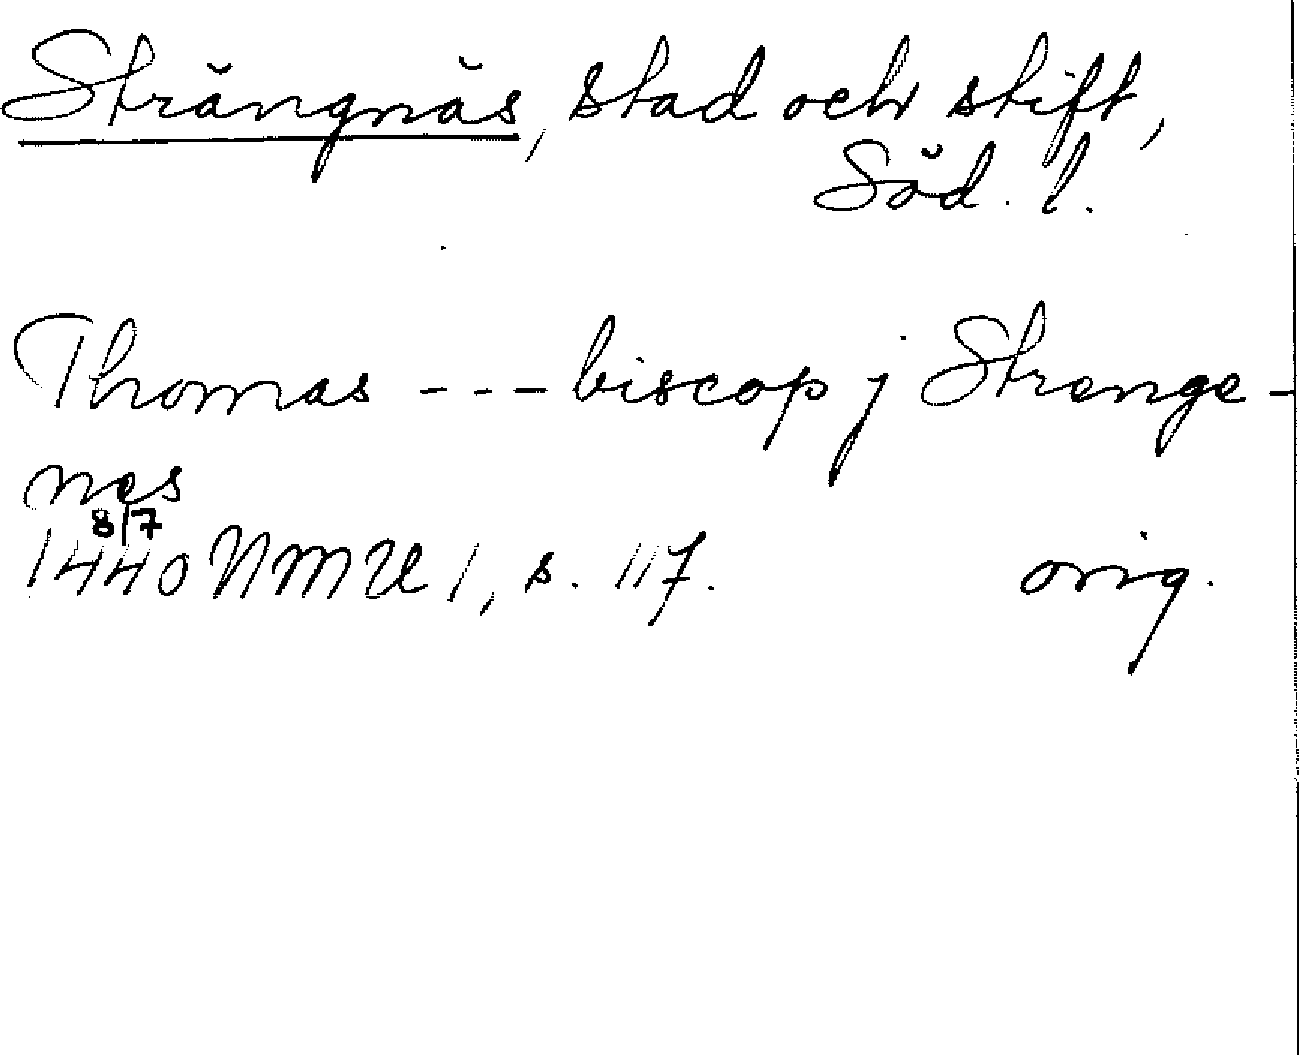 Strängnäs, stad och stift,
Söd. l.
Thomas --- biscop j Strenge-
nes
8/7
1440 NMU 1, s. 117. orig.